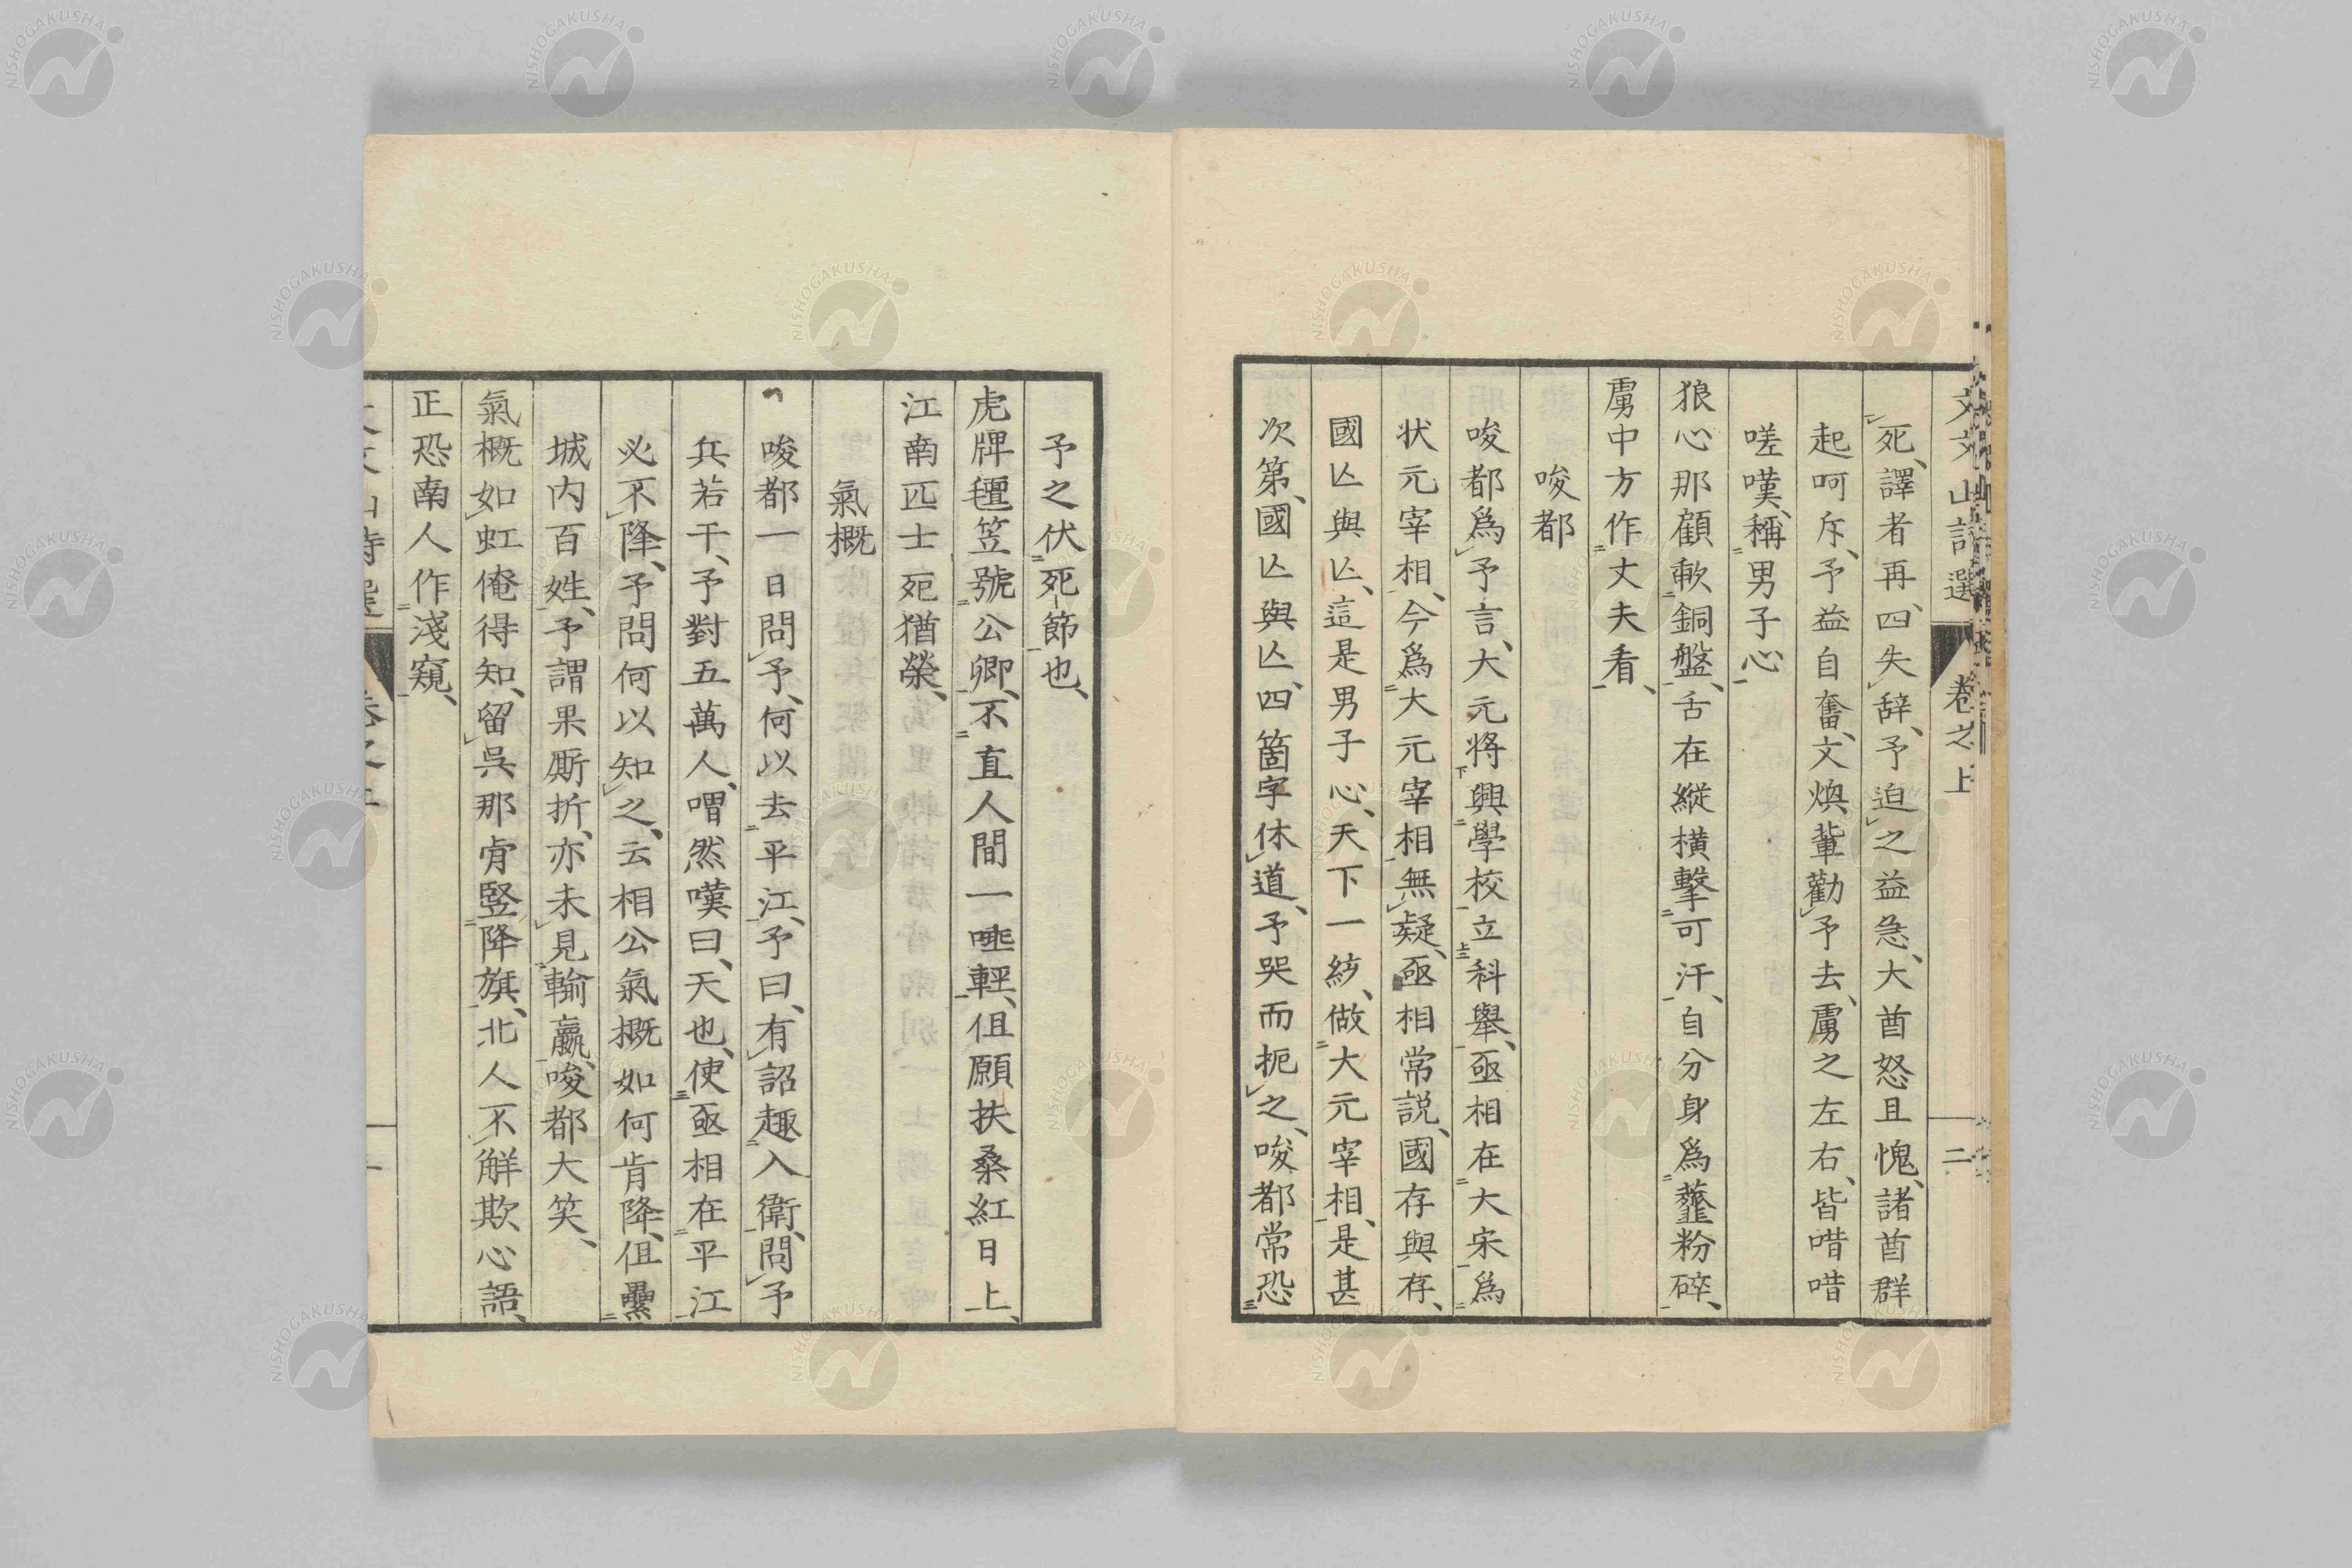 文文山詩選 卷之上 二
死、譯者再四失辞、予迫之益急、大酋怒且愧、諸酋群
起呵斥、予益自奮、文煥輩勸予去、虜之左右、皆唶唶
嗟嘆、稱男子心
狼心那顧歃銅盤、舌在縱橫擊可汗、自分身爲虀粉碎、
虜中方作丈夫看、
唆都
唆都爲予言、大元將興學校立科舉、亟相在大宋爲
状元宰相、今爲大元宰相無疑、亟相常説、國存與存、
國亾與亾、這是男子心、天下一綂、做大元宰相、是甚
次第、國亾與亾、四箇字休道、予哭而扼之、唆都常恐
予之伏死節也、
虎牌氊笠號公卿、不直人間一唾輕、但願扶桑紅日上、
江南匹士死猶榮、
氣概
唆都一日問予、何以去平江、予曰、有詔趣入衛、問予
兵若干、予對五萬人、喟然嘆曰、天也、使亟相在平江
必不降、予問何以知之、云相公氣概如何肯降、但纍
城内百姓、予謂果厮折、亦未見輸贏、唆都大笑、
氣概如虹俺得知、留呉那肯竪降旗、北人不解欺心語、
正恐南人作淺窺、
NISHOGAKUSHA